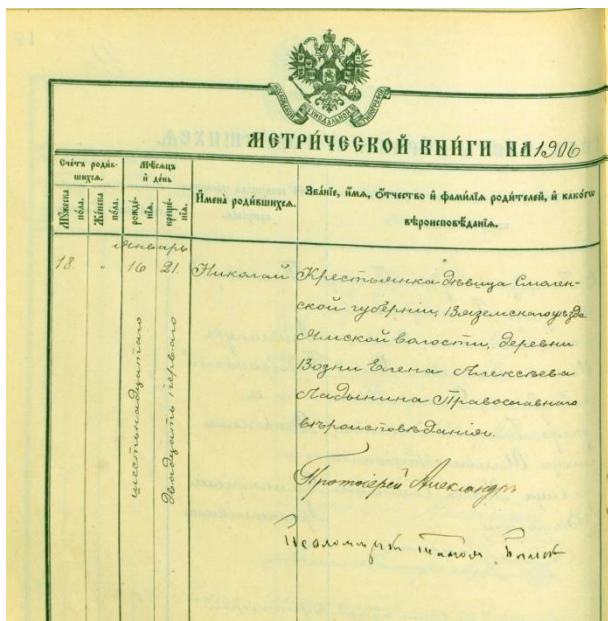 МЕТРИЧЕСКОЙ КНИГИ НА 1906
Счетъ родив-
шихся.
Мѣсяцъ
и день
Имена родившихся.
Званіе, имя, отчество и фамилія родителей, и какого
вѣроисповѣданія.
Мужеска
пола.
Женска
пола.
рожде-
нія.
креще-
нія.
Январь
18. " 16 21. Николай
шестнадцатаго
двадцать перваго
Крестьянка дѣвица Смолен-
ской губерніи, Вяземскаго уѣзда
Ямской волости, деревни
Возни Елена Алексѣева
Ладынина Православнаго
вѣроисповѣданія.
Протоіерей Александръ
Псаломщикъ